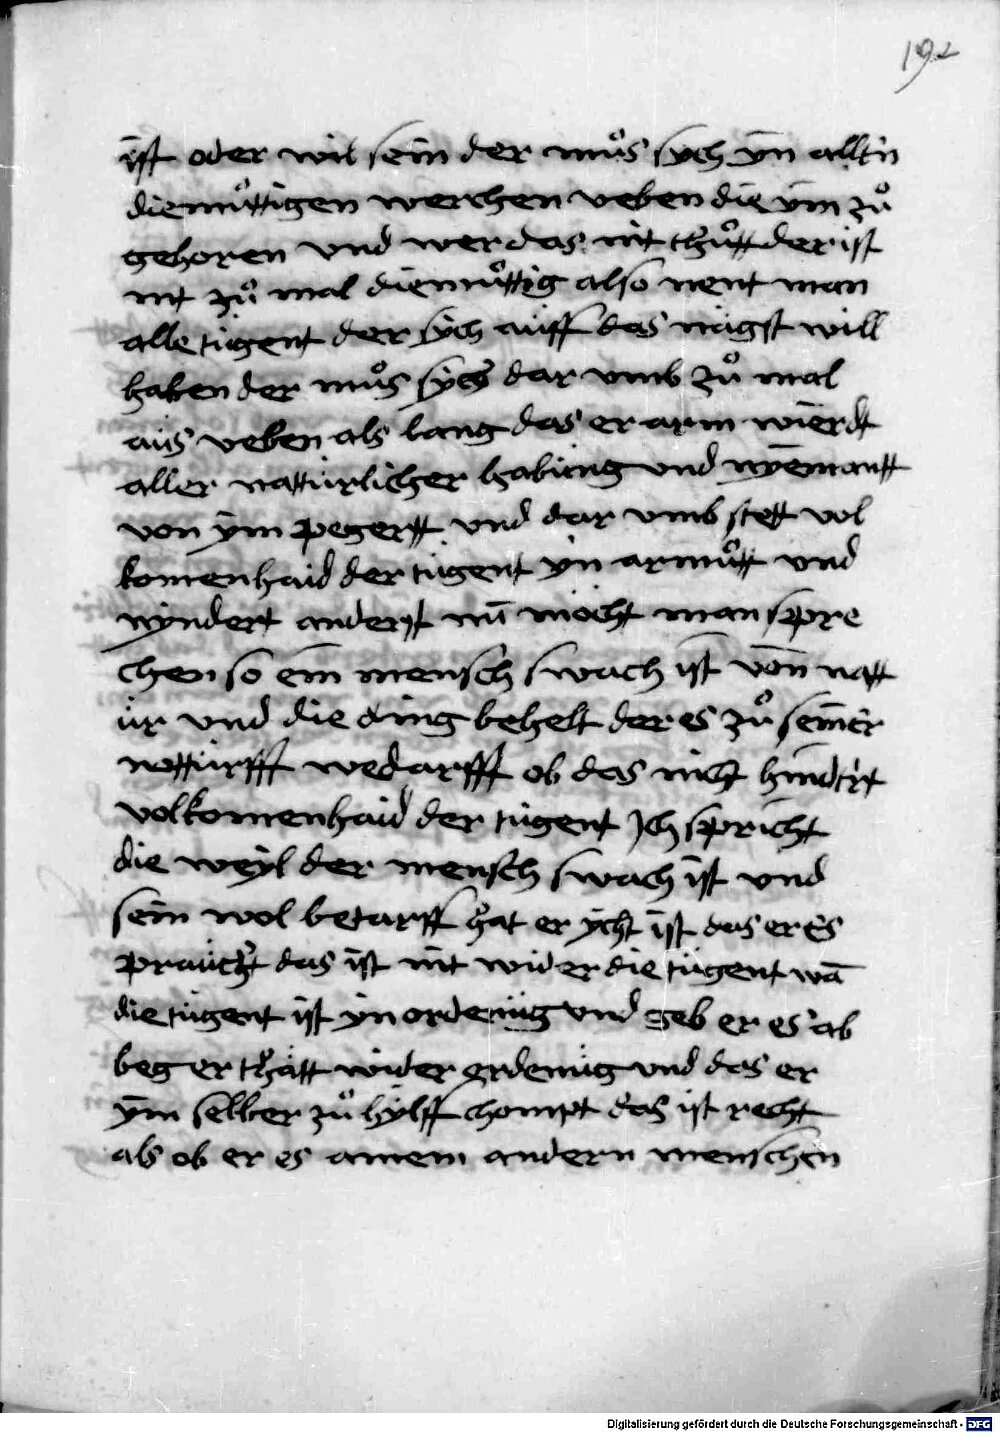 192
ist oder wil sein der můs sych yn allen
diemůttigen werchen veben die ym zů
gehoren vnd wer das nit thůtt der ist
nit zů mal diemůttig also nent man
alle tugent der sych auff das nagst will
haben der můs sych dar vmb zů mal
aus veben als lang das er arm wierdt
aller natturlicher habung vnd nyemantt
von ym pegertt vnd dar vmb stett vol
komenhaid der tugent yn armůtt vnd
nyndert anderst nu mocht man spre
chen so ein mensch swach ist von natt
ur vnd die ding behelt der es zů seiner
notturfft wedarfft ob das nicht hindert
volkomenhaid der tugent Ich spricht
die weyl der mensch swach ist vnd
sein wol betarff hat er ycht ist das er es
praucht das ist nit wider die tugent wā
die tugent ist yn ordenug vnd geb er es ab
beg er thätt wider ordenug vnd das er
ym selber zů hylff chompt das ist recht
als ob er es ainem andern menschen
Digitalisierung gefördert durch die Deutsche Forschungsgemeinschaft - DFG